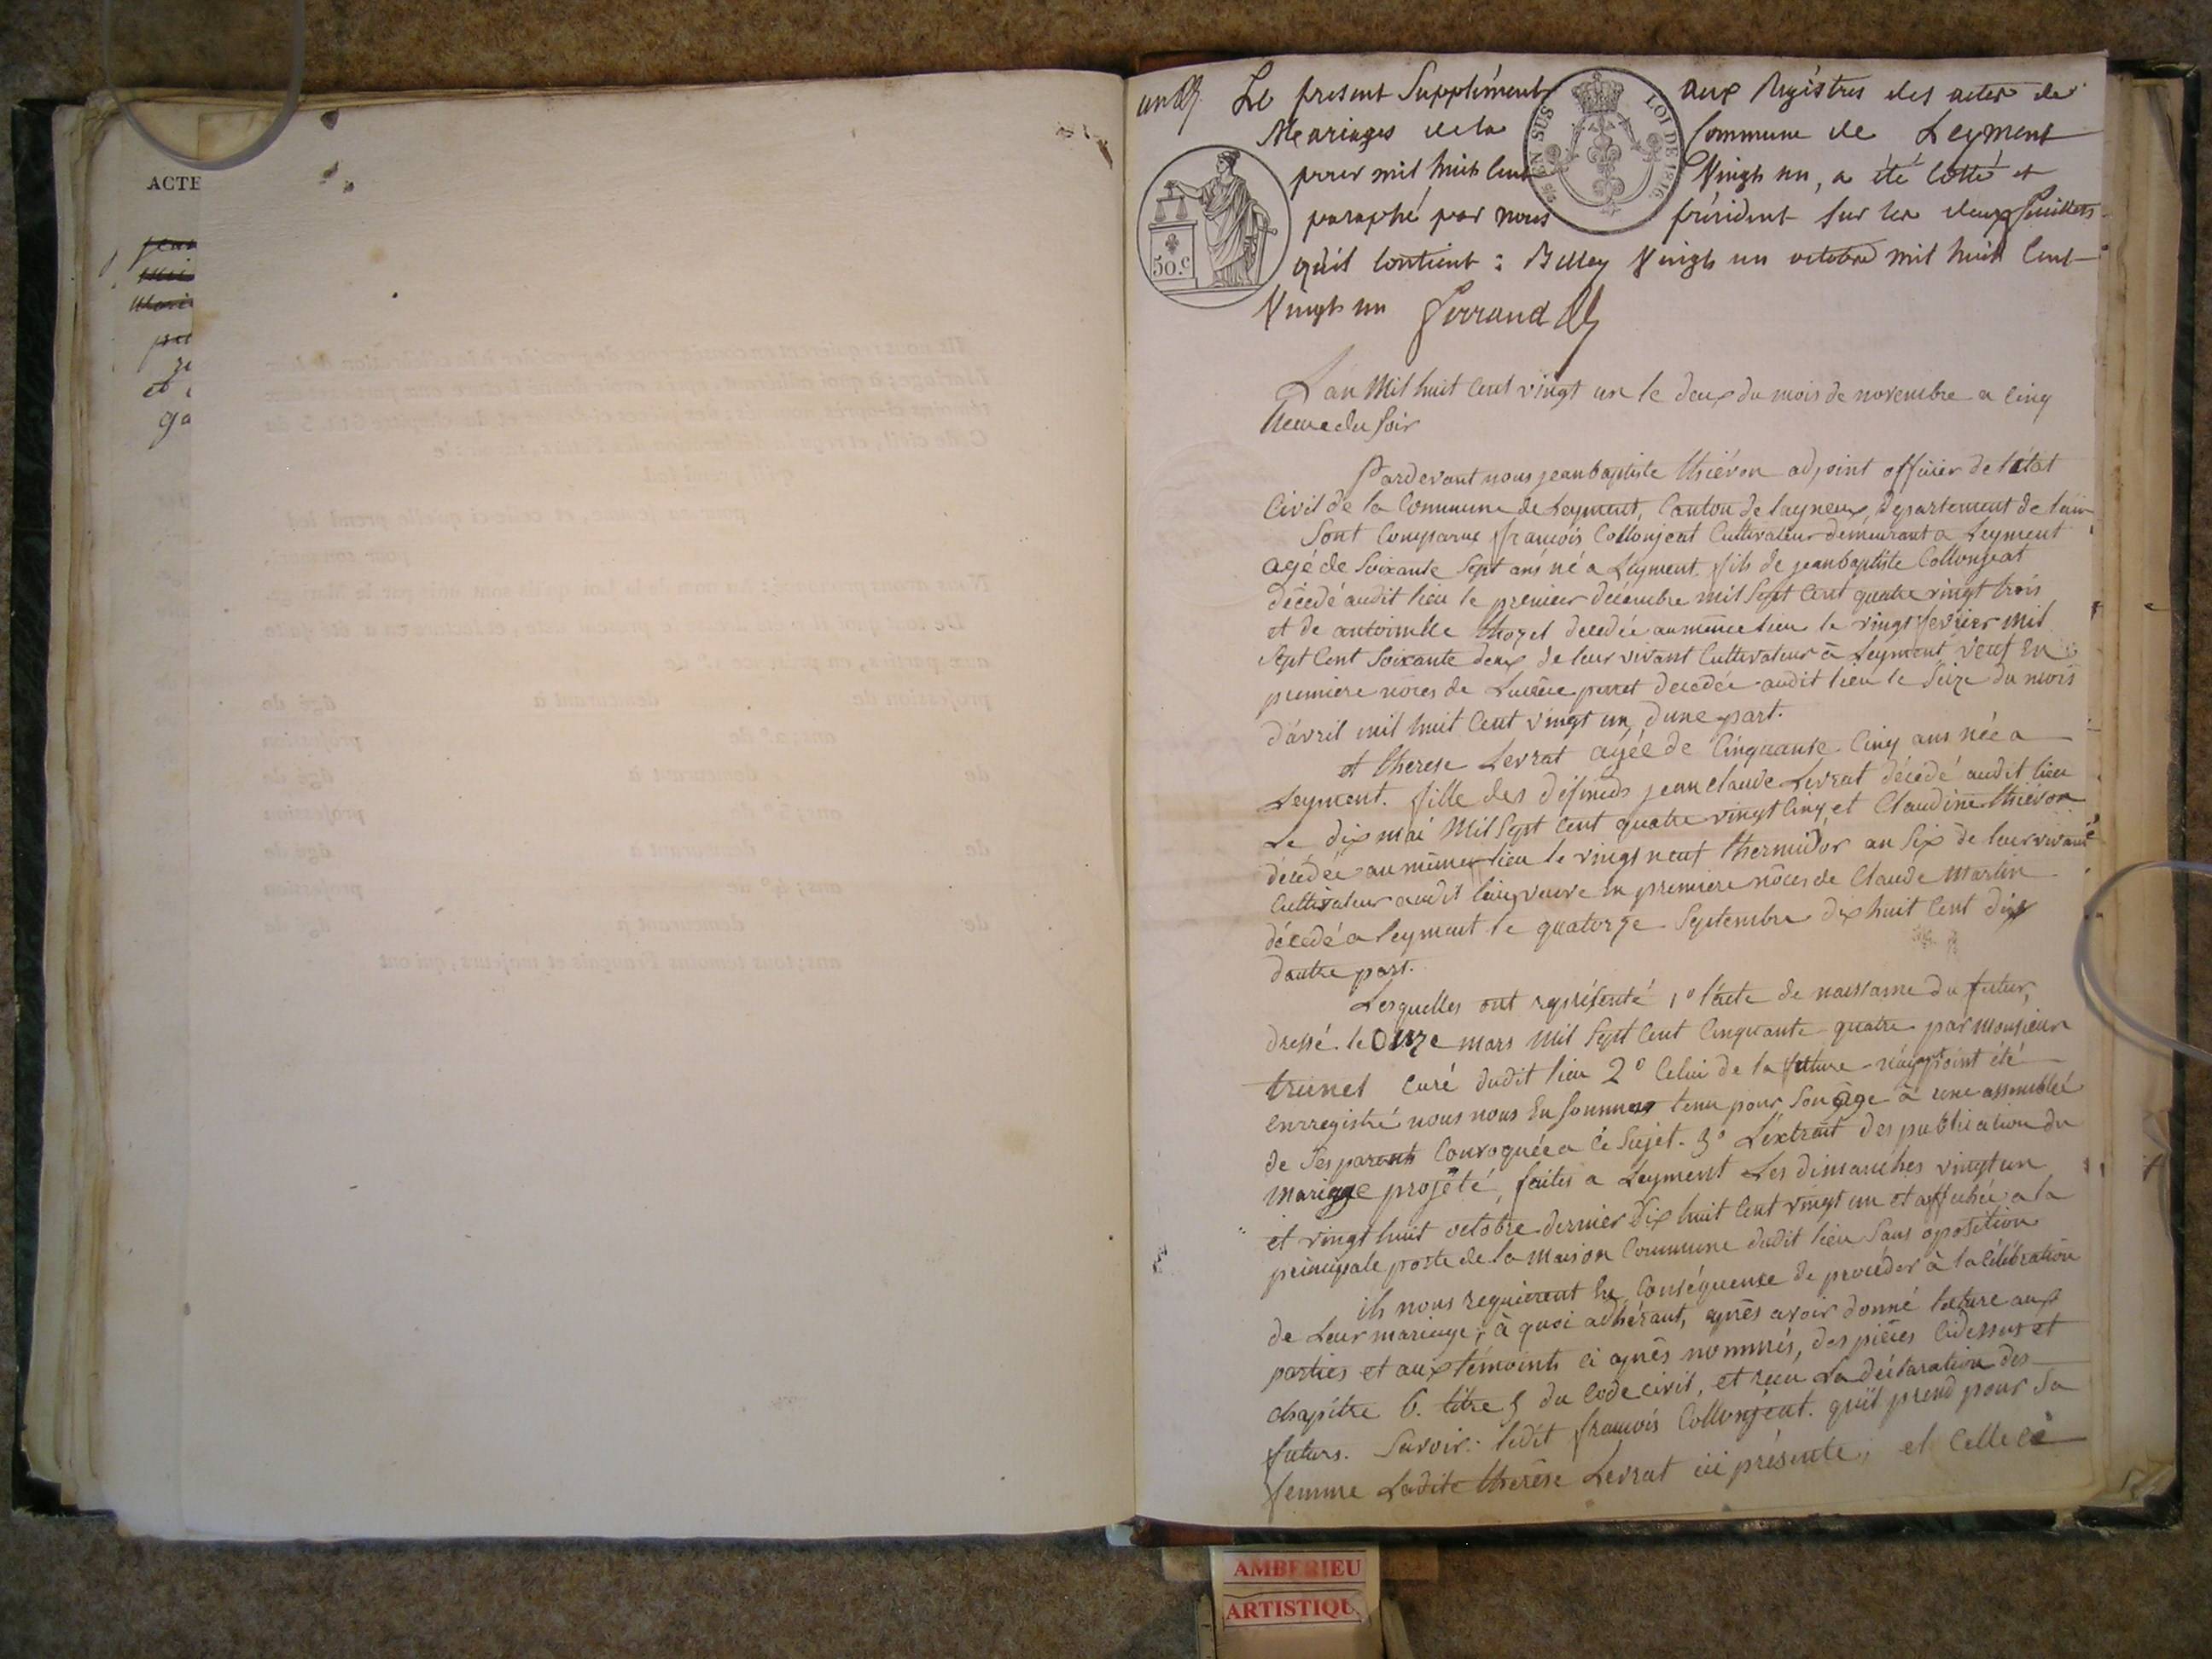 ACTE
un Le present Supplément aux Régistres des actes de
Mariages de la Commune de Leyment
pour mil huit cent Vingt un, a été cotté et
paraphé par nous président sur les deux feuillets
qu'il contient : Belley Vingt un octobre mil huit Cent
Vingt un Ferrand
EN SUS
LOI DE 1816.
50.c
L'an Mil huit Cent vingt un le deux du mois de novembre a Cinq
heure du soir
Pardevant nous jean baptiste thiévon adjoint officier de l'état
Civil de la Commune de Leyment, Canton de lagneux, département de l'ain
Sont Comparus françois Collonjeat Cultivateur demeurant a Leyment
agé de Soixante Sept ans né a Leyment. fils de jean baptiste Collonjeat
décedé audit lieu le premier décembre mil Sept Cent quatre vingt trois
et de antoinette thozet decedée au même lieu le vingt fevrier mil
Sept Cent Soixante deux de leur vivant Cultivateur à Leyment veuf En
premiere nôces de Lucrèce perret decedée audit lieu le Seize du mois
d'avril mil huit Cent vingt un, d'une part.
et therese Levrat agée de Cinquante Cinq ans née a
Leyment. fille des défunds jean claude Levrat décedé audit lieu
Le dix mai Mil Sept Cent quatre vingt Cinq et Claudine thiévon
décédée au même lieu le vingt neuf thermidor an Six de leur vivant
Cultivateur audit lieu, veuve en premiere nôces de Claude Martin
décedé a leyment le quatorze Septembre dix huit Cent dix
d'autre part.
Lesquelles ont représenté 1º l'acte de naissance du futur,
dressé le Onze mars Mil Sept Cent Cinquante quatre par Monsieur
trunel Curé dudit lieu 2º Celui de la future n'ayant point été
enrregistré nous nous En sommes tenu pour Son âge à une assemblée
de Ses parents Convoquée a ce Sujet. 3º L'extrait des publication du
mariage projété, faites a Leyment Les dimanches vingt un
et vingt huit octobre dernier dix huit Cent vingt un et affichée a la
principale porte de la Maison Commune dudit lieu Sans oposition
ils nous requierent En Conséquence de proceder à la célébration
de Leur mariage; à quoi adhérant, après avoir donné lecture aux
parties et aux témoints ci après nommés, des pièces Cidessus et
chapitre 6. titre 5 du Code civil, et reçu La déclaration des
futurs. Savoir: ledit françois Collonjeat. qu'il prend pour Sa
femme Ladite therèse Levrat ici présente, et Celle ci
AMBERIEU
ARTISTIQU